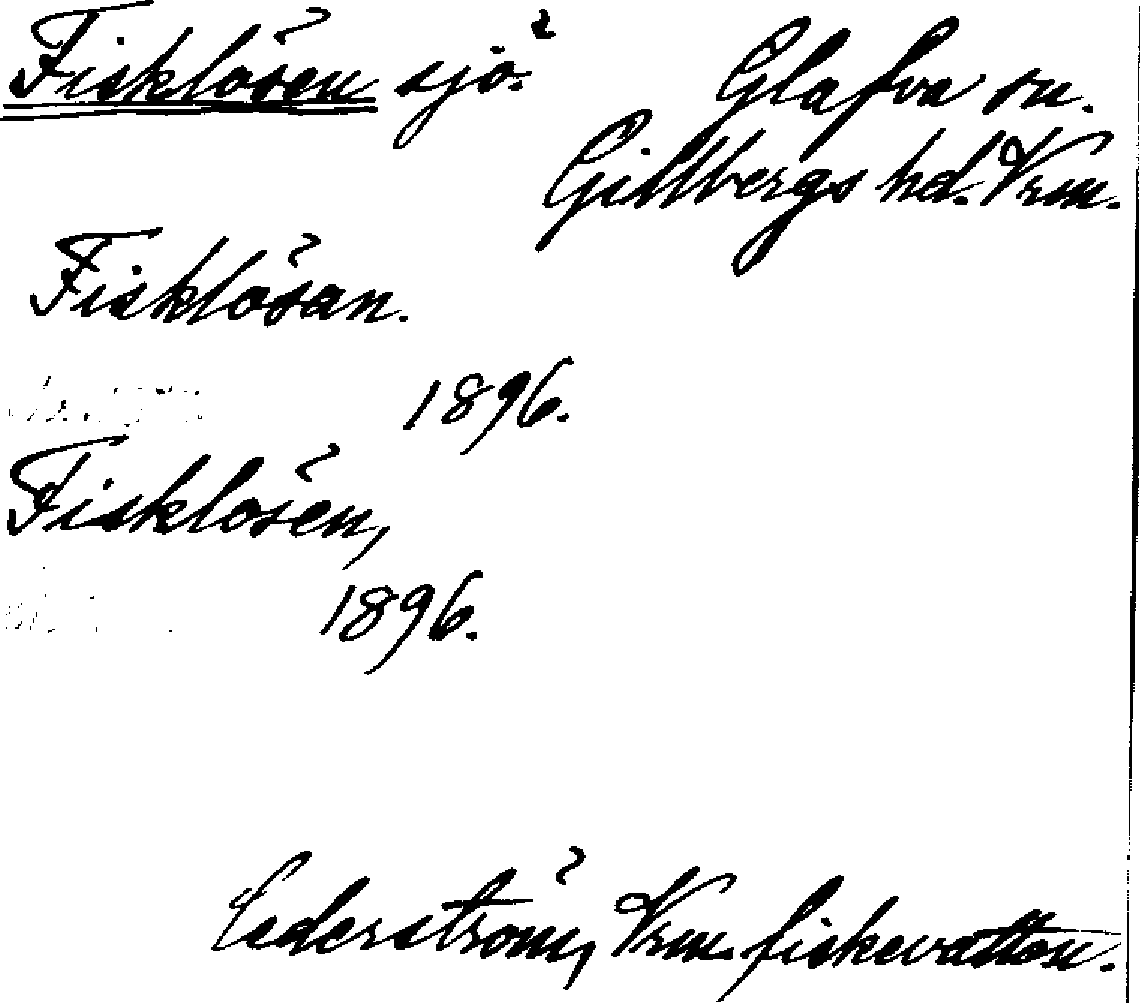 Fisklösen sjö. Glafva sn.
Gillbergs hd. Vrm.
Fisklösan.
1896.
Fisklösen,
1896.
Cederström, Vrm. fiskevatten.